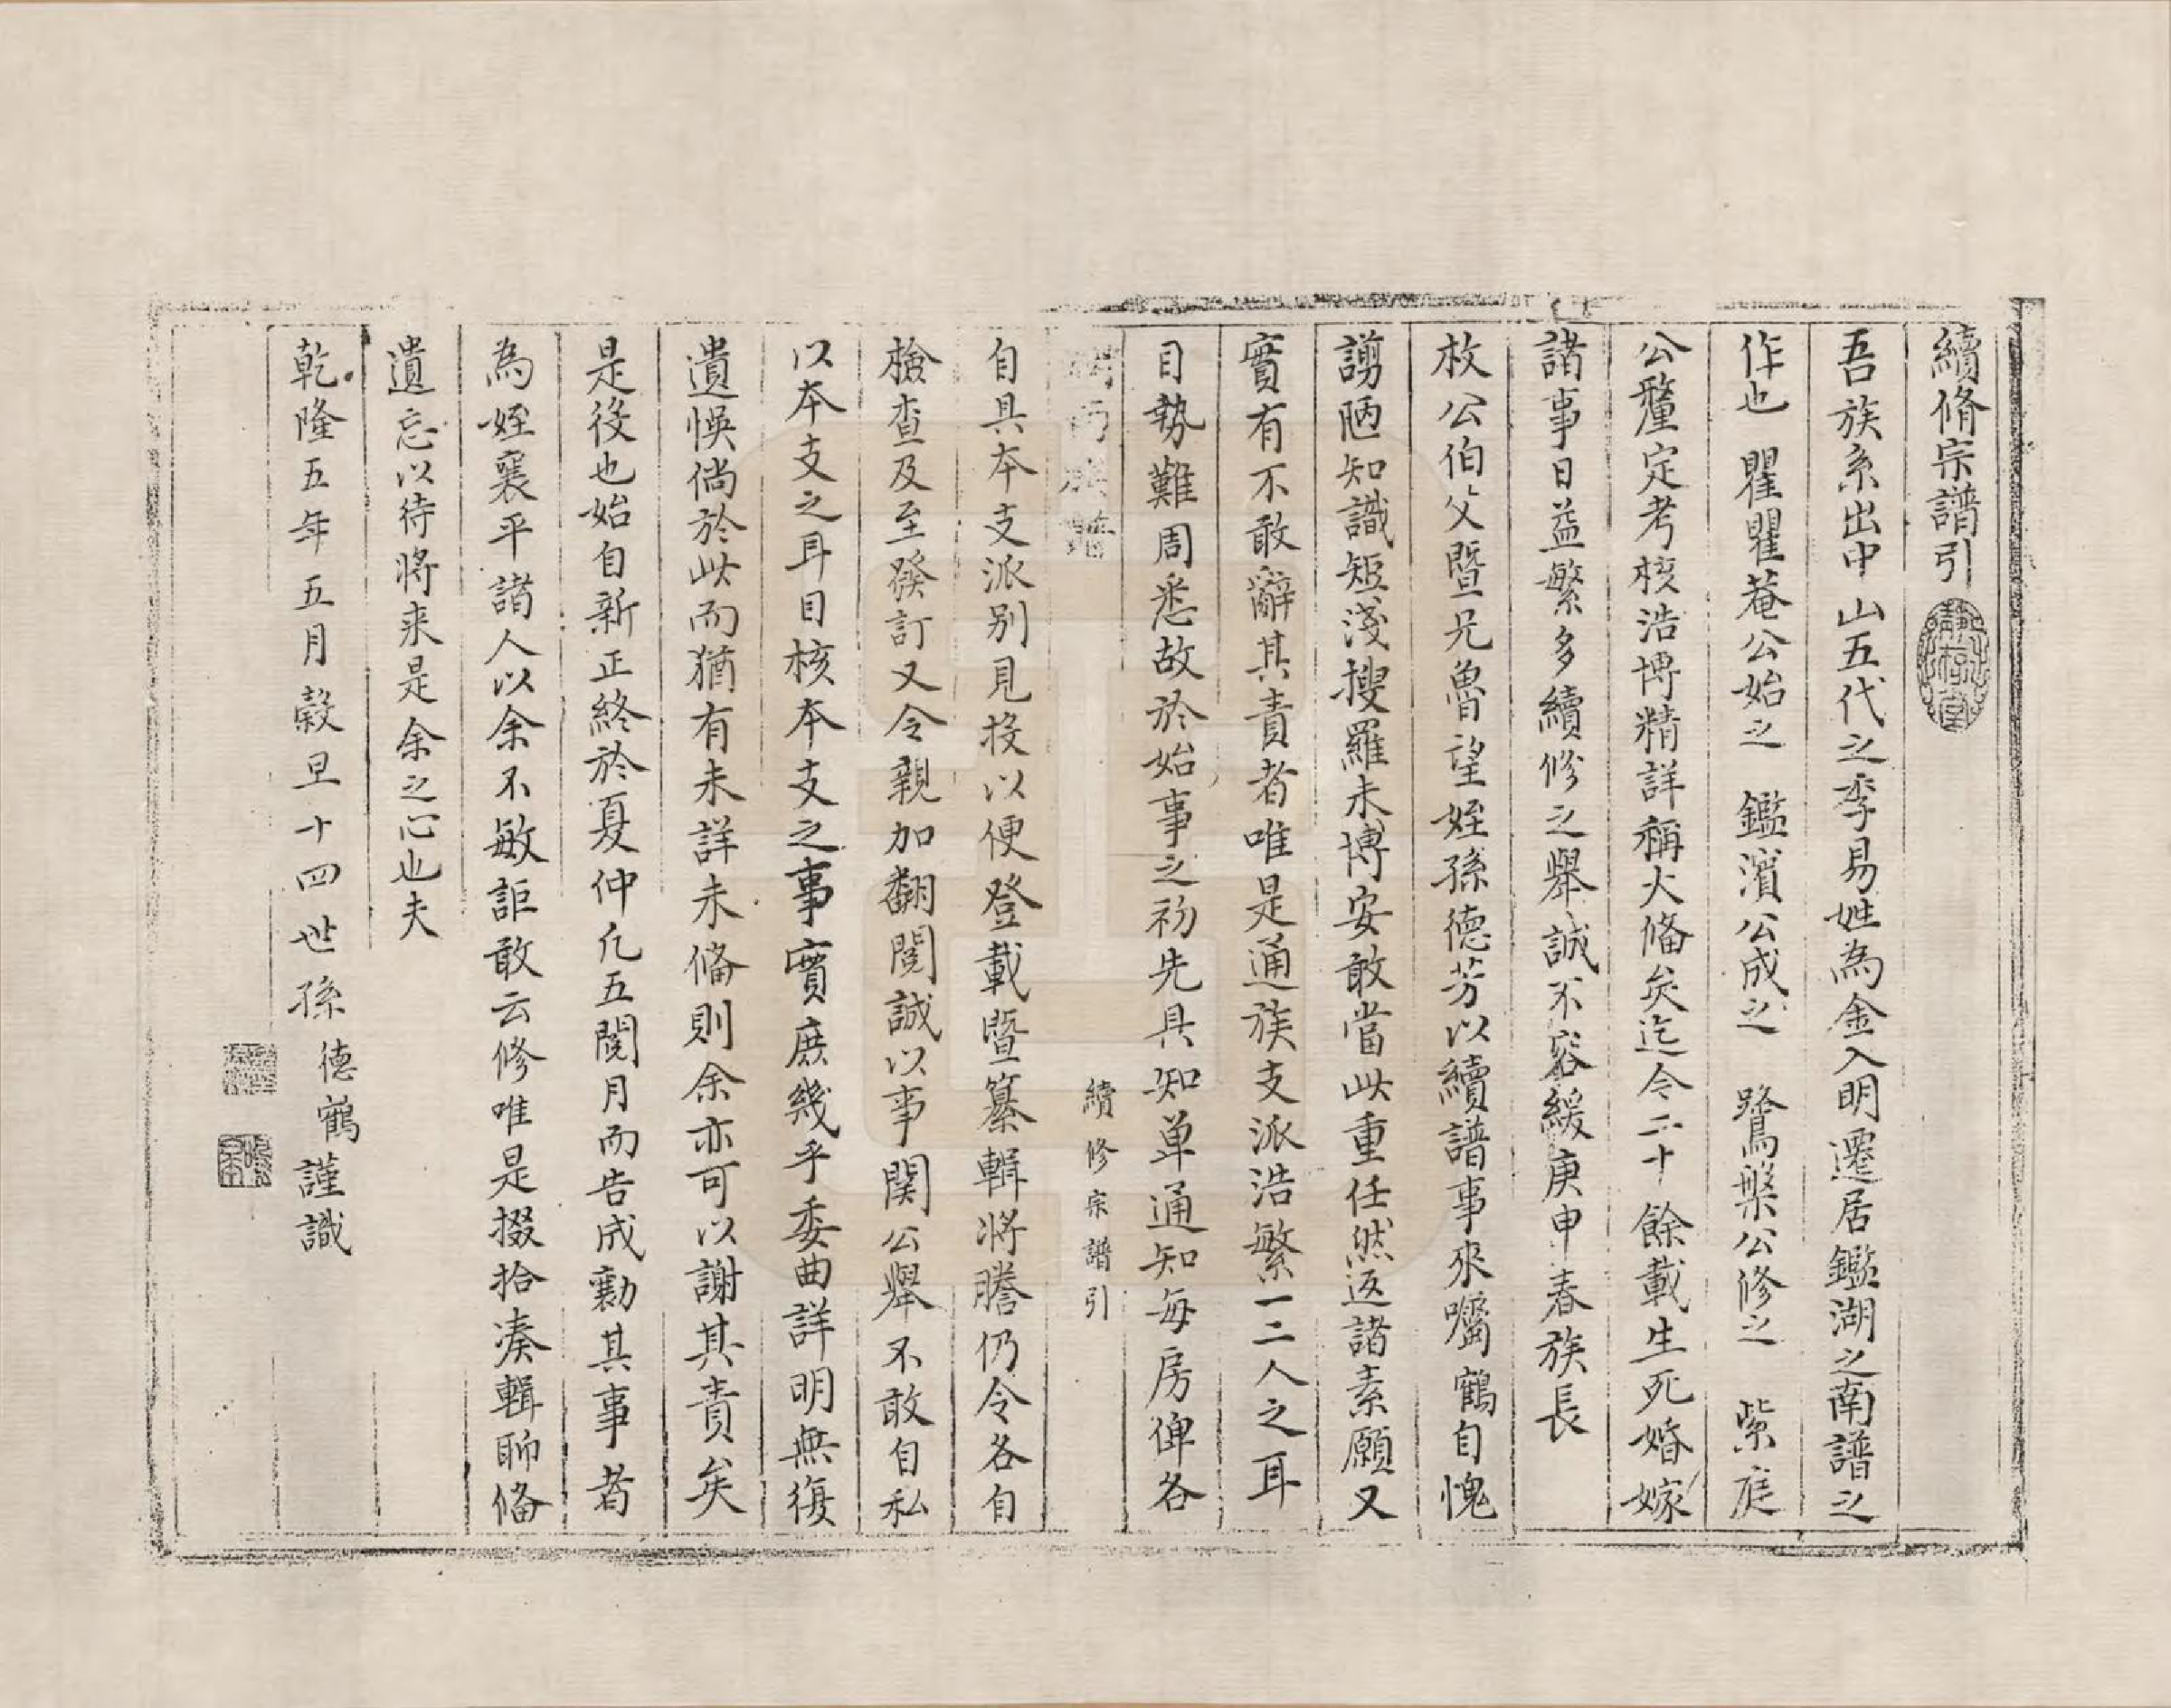 續脩宗譜引
吾族系出中山五代之季易姓為金入明遷居鑑湖之南譜之
作也 瞿瞿菴公始之 鑑濱公成之 鷺槃公修之 紫庭
公釐定考核浩博精詳稱大備矣迄今二十餘載生死婚嫁
諸事日益繁多續修之舉誠不容緩庚申春族長
枚公伯父暨兄魯望姪孫德芳以續譜事來囑鶴自愧
謭陋知識短淺搜羅未博安敢當此重任然返諸素願又
實有不敢辭其責者唯是通族支派浩繁一二人之耳
目勢難周悉故於始事之初先具知单通知每房俾各
續修宗譜引
自具本支派别見投以便登載暨纂輯將謄仍令各自
檢查及至發訂又令親加翻閱誠以事関公舉不敢自私
以本支之耳目核本支之事實庶幾乎委曲詳明無復
遺悞倘於此而猶有未詳未備則余亦可以謝其責矣
是役也始自新正終於夏仲凡五閱月而告成勷其事者
為姪襄平諸人以余不敏詎敢云修唯是掇拾湊輯聊備
遺忘以待將来是余之心也夫
乾隆五年五月穀旦十四世孫德鶴謹識